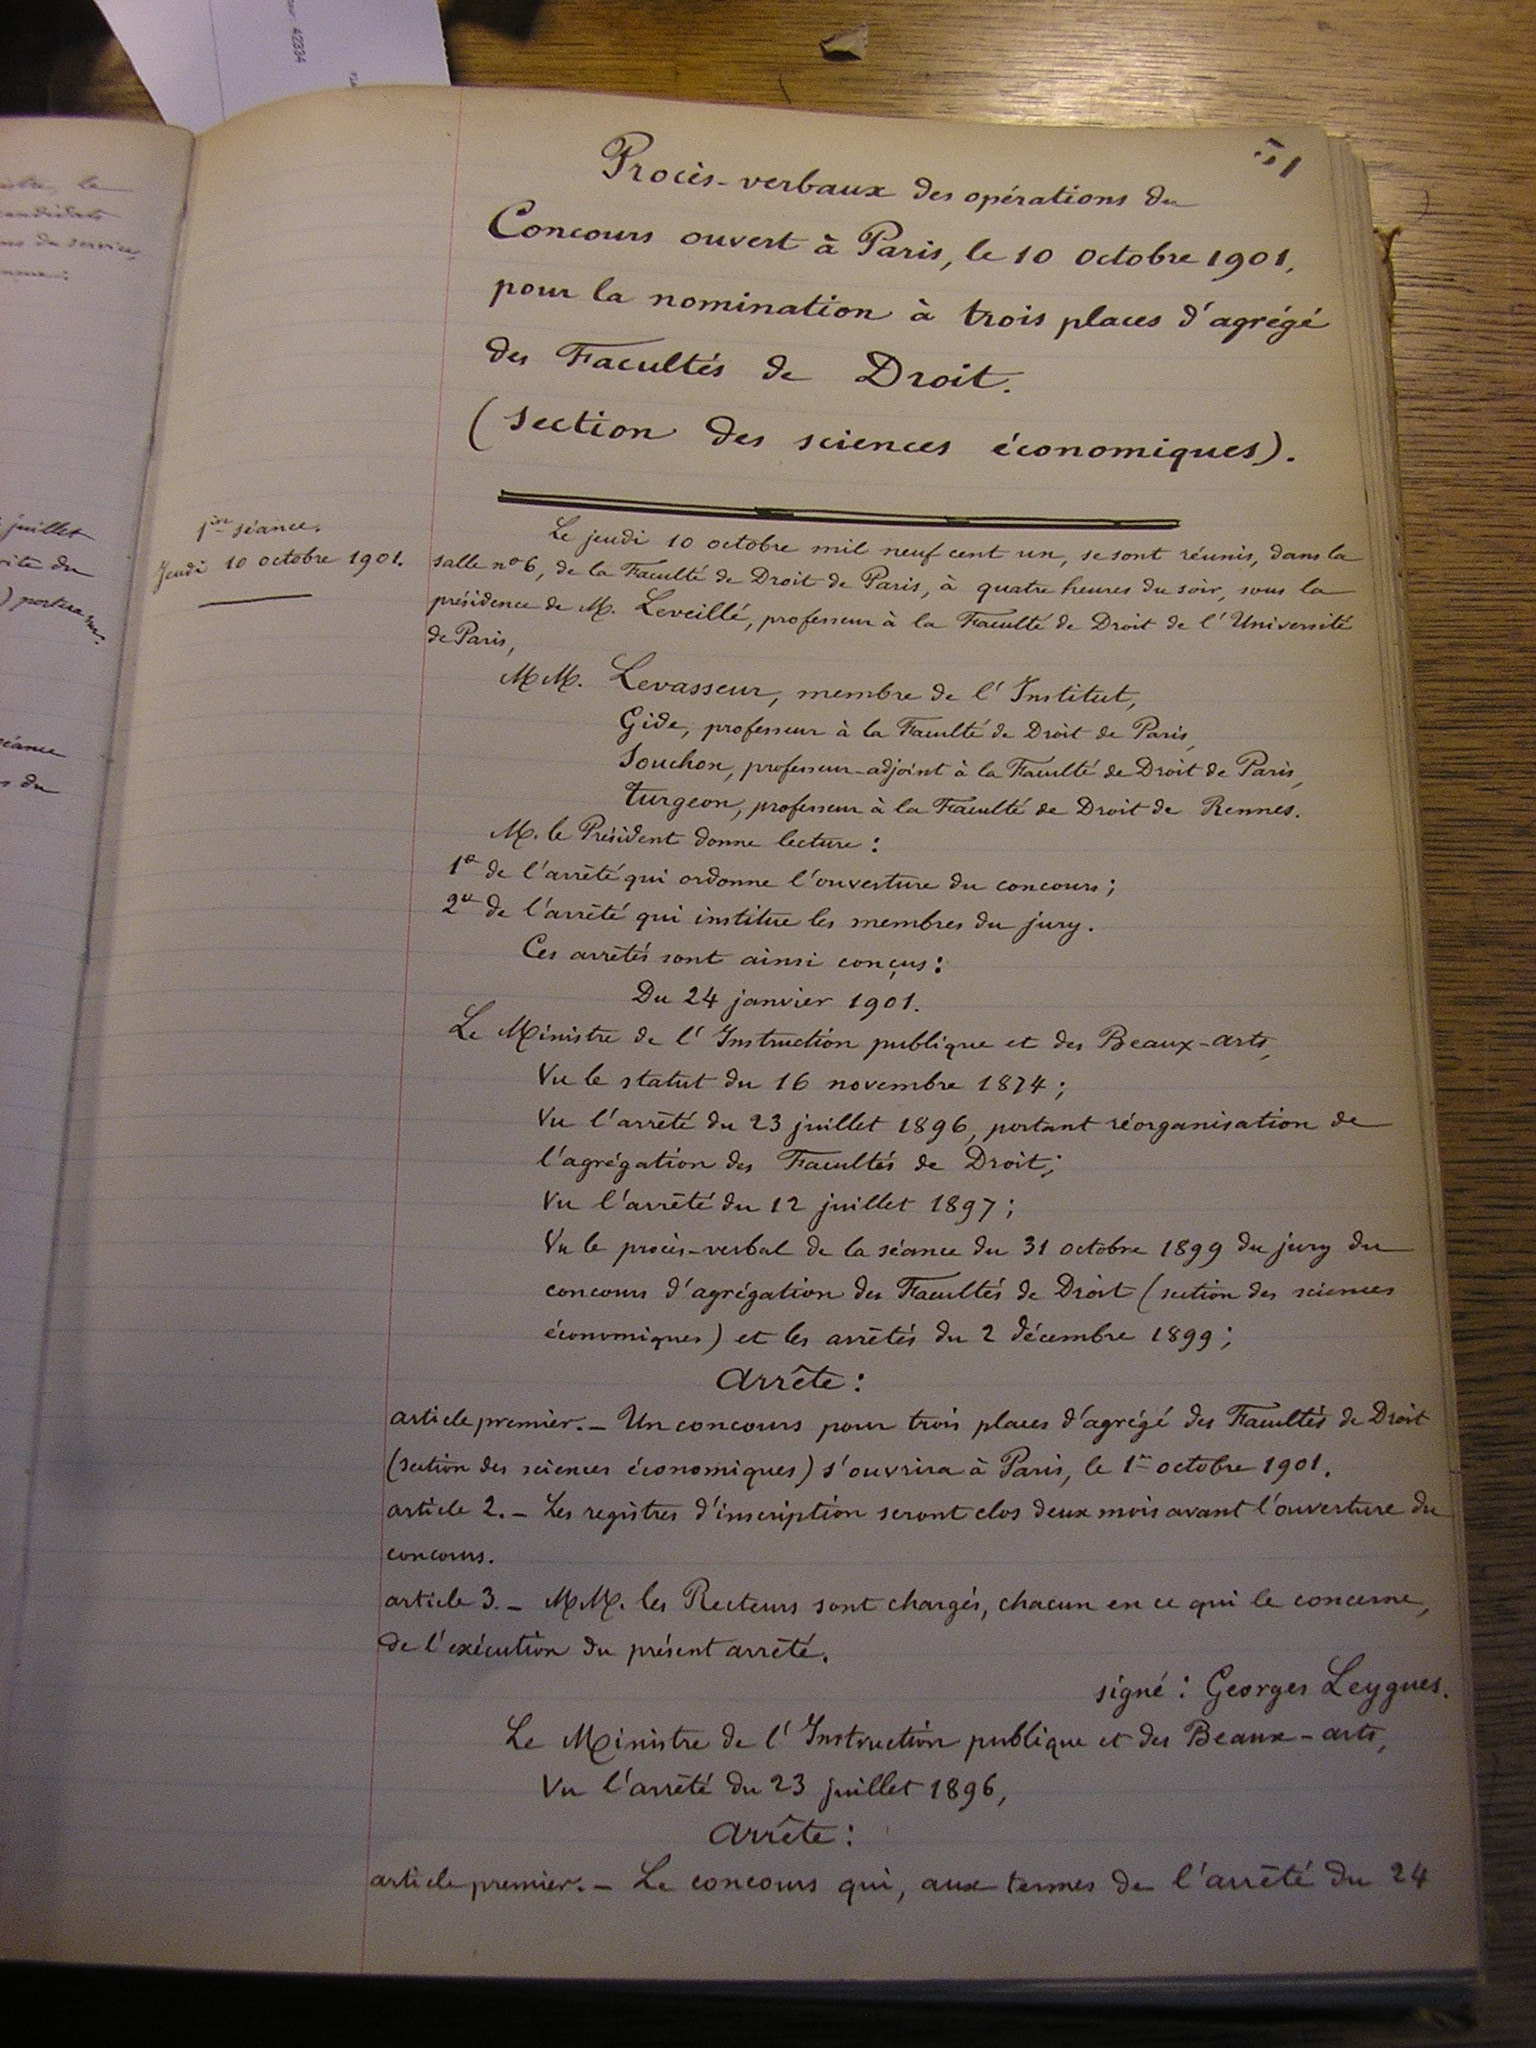 51
Procès-verbaux des opérations du
Concours ouvert à Paris, le 10 octobre 1901,
pour la nomination à trois places d'agrégé
des Facultés de Droit.
(section des sciences économiques).
1ère séance.
Jeudi 10 octobre 1901.
Le jeudi 10 octobre mil neuf cent un, se sont réunis, dans la
salle n° 6, de la Faculté de Droit de Paris, à quatre heures du soir, sous la
présidence de M. Leveillé, professeur à la Faculté de Droit de l'Université
de Paris,
MM. Levasseur, membre de l'Institut,
Gide, professeur à la Faculté de Droit de Paris,
Souchon, professeur-adjoint à la Faculté de Droit de Paris,
Turgeon, professeur à la Faculté de Droit de Rennes.
M. le Président donne lecture :
1° de l'arrêté qui ordonne l'ouverture du concours ;
2° de l'arrêté qui institue les membres du jury.
Ces arrêtés sont ainsi conçus :
Du 24 janvier 1901.
Le Ministre de l'Instruction publique et des Beaux-arts,
Vu le statut du 16 novembre 1874 ;
Vu l'arrêté du 23 juillet 1896, portant réorganisation de
l'agrégation des Facultés de Droit ;
Vu l'arrêté du 12 juillet 1897 ;
Vu le procès-verbal de la séance du 31 octobre 1899 du jury du
concours d'agrégation des Facultés de Droit (section des sciences
économiques) et les arrêtés du 2 décembre 1899 ;
Arrête :
article premier. – Un concours pour trois places d'agrégé des Facultés de Droit
(section des sciences économiques) s'ouvrira à Paris, le 1er octobre 1901.
article 2. – Les registres d'inscription seront clos deux mois avant l'ouverture du
concours.
article 3. – MM. les Recteurs sont chargés, chacun en ce qui le concerne,
de l'exécution du présent arrêté.
signé : Georges Leygues.
Le Ministre de l'Instruction publique et des Beaux-arts,
Vu l'arrêté du 23 juillet 1896,
Arrête :
article premier. – Le concours qui, aux termes de l'arrêté du 24
42334
juillet
du
séance
du